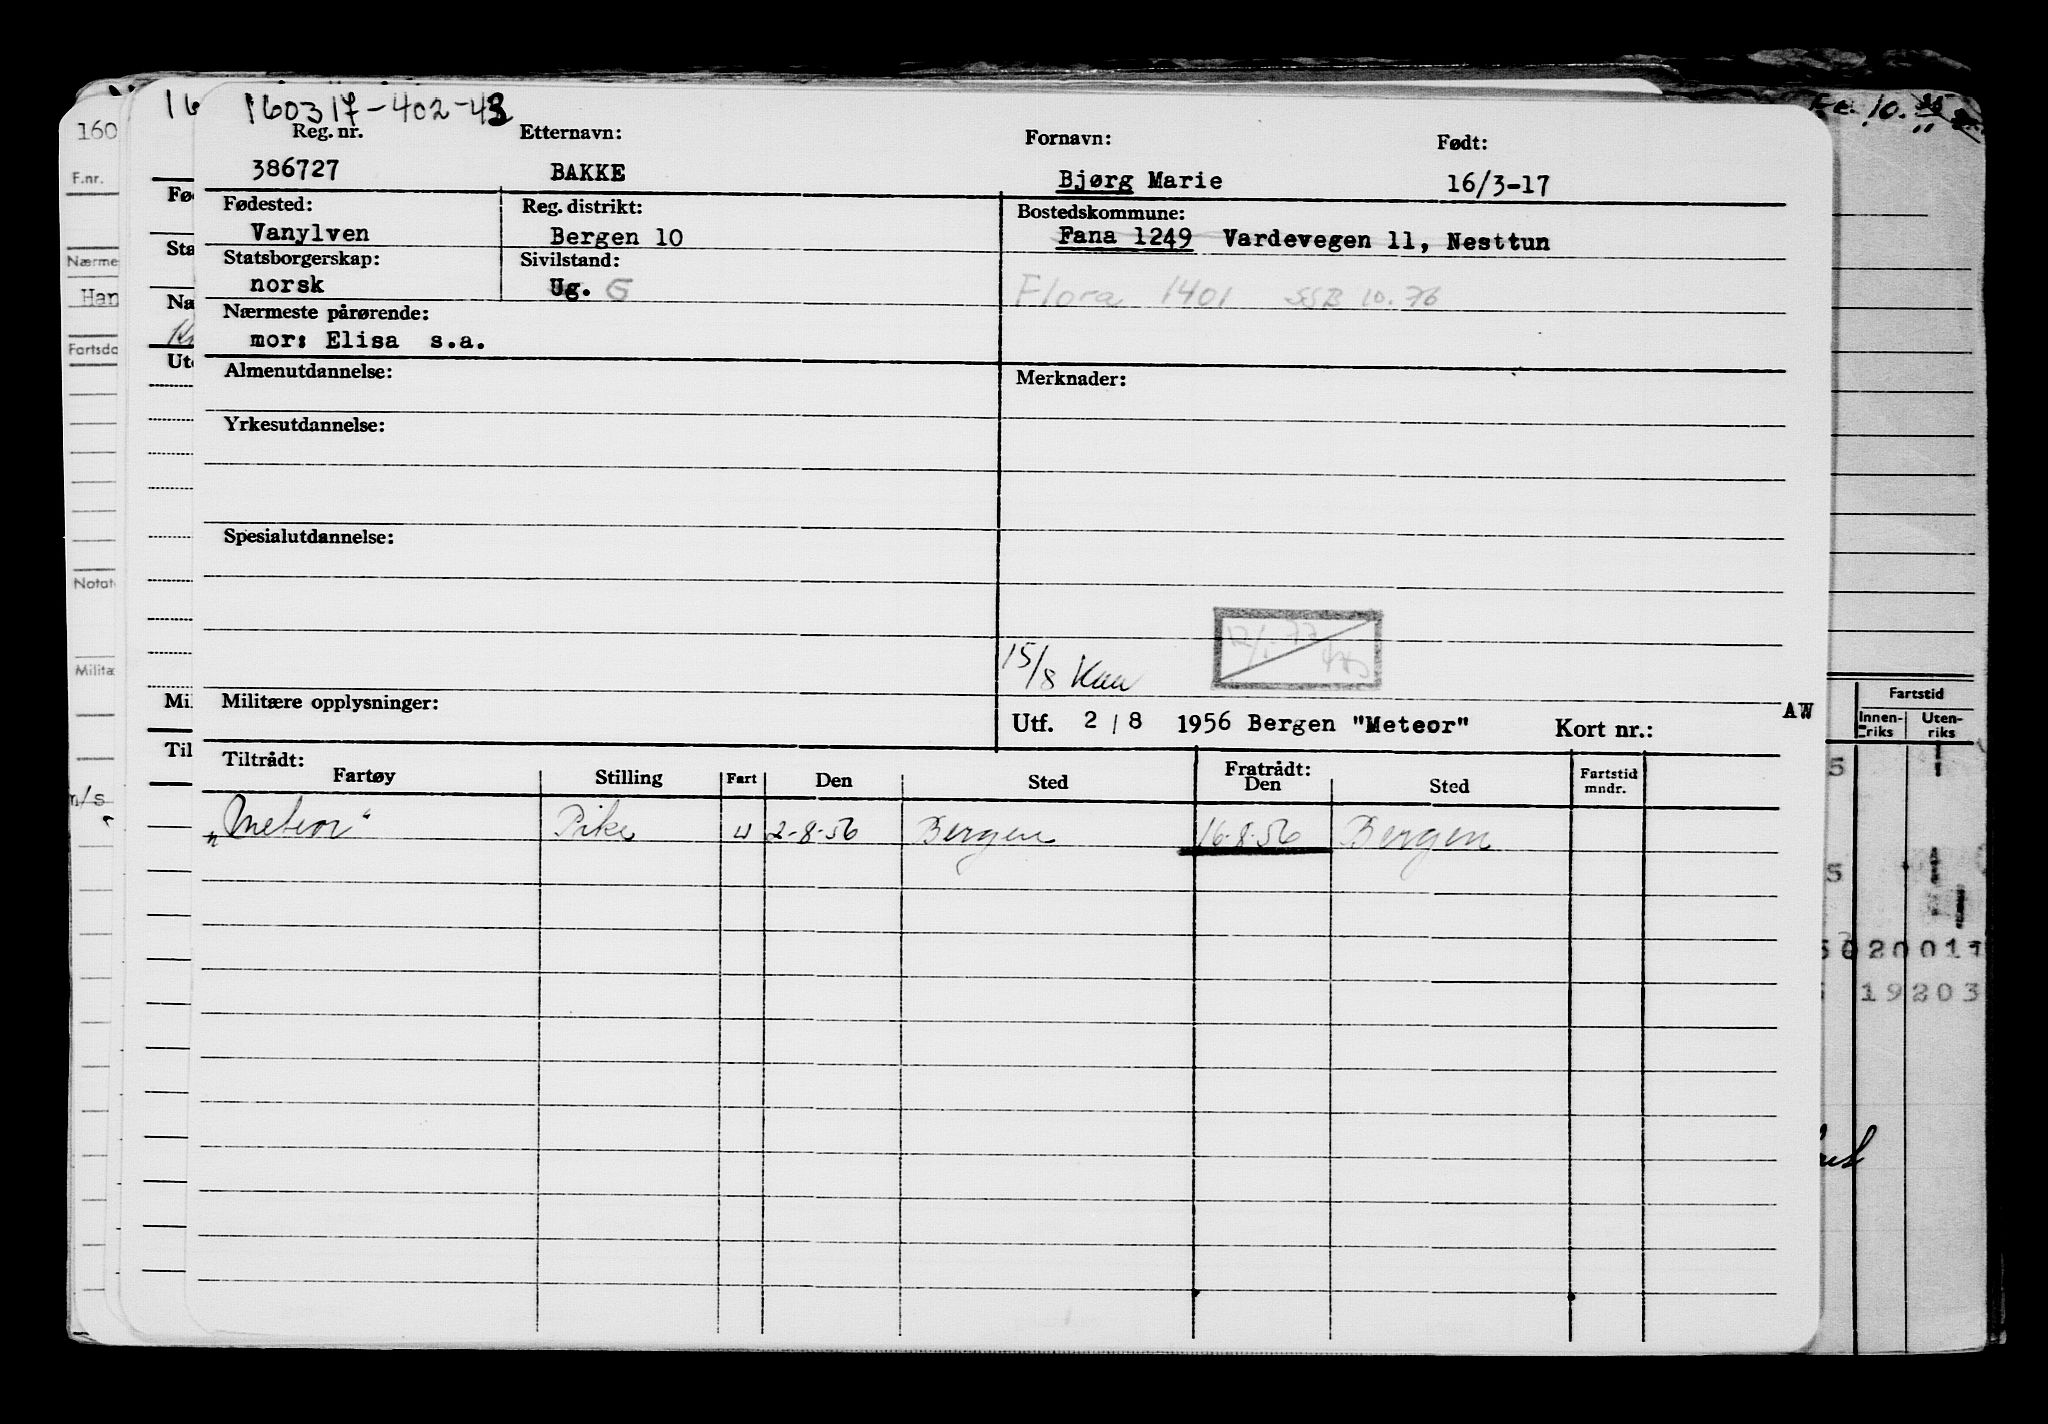 160317-402-43
Reg. nr. Etternavn: Fornavn: Født:
386727 BAKKE Bjørg Marie 16/3-17
Fødested: Reg. distrikt: Bostedskommune:
Vanylven Bergen 10 Fana 1249 Vardevegen 11, Nesttun
Statsborgerskap: Sivilstand:
norsk Ug. G Flora 1401 SSB 10.76
Nærmeste pårørende:
mor: Elisa s.a.
Almenutdannelse: Merknader:
Yrkesutdannelse:
Spesialutdannelse:
15/8 Kaa
Militære opplysninger: Utf. 2/8 1956 Bergen "Meteor" Kort nr.: AW
Tiltrådt: Fratrådt:
Fartøy Stilling Fart Den Sted Den Sted Fartstid mndr.
"Meteor" Pike U 2-8-56 Bergen 16-8-56 Bergen
160
F.nr.
Nærme
Han
Fartsdo
Notat
Militæ
m/s
16
Fø
Sta
Næ
Ut
Mil
Til
Fartstid
Innen-riks Uten-riks
5
5
50 20 011
19 203